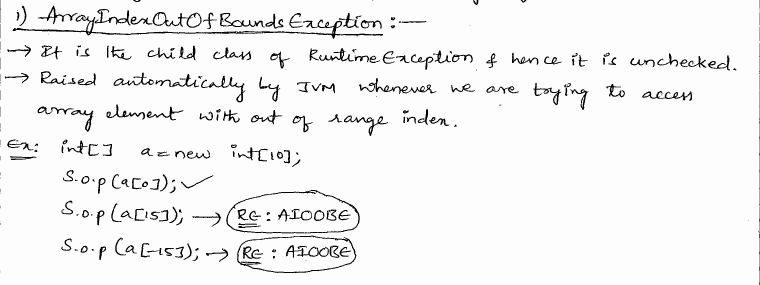 1) ArrayIndexOutOfBoundsException :—
→ It is the child class of RuntimeException & hence it is unchecked.
→ Raised automatically by JVM whenever we are trying to access
array element with out of range index.
Ex: int[] a = new int[10];
S.o.p (a[0]); ✓
S.o.p (a[15]); → RE : AIOOBE
S.o.p (a[-15]); → RE : AIOOBE